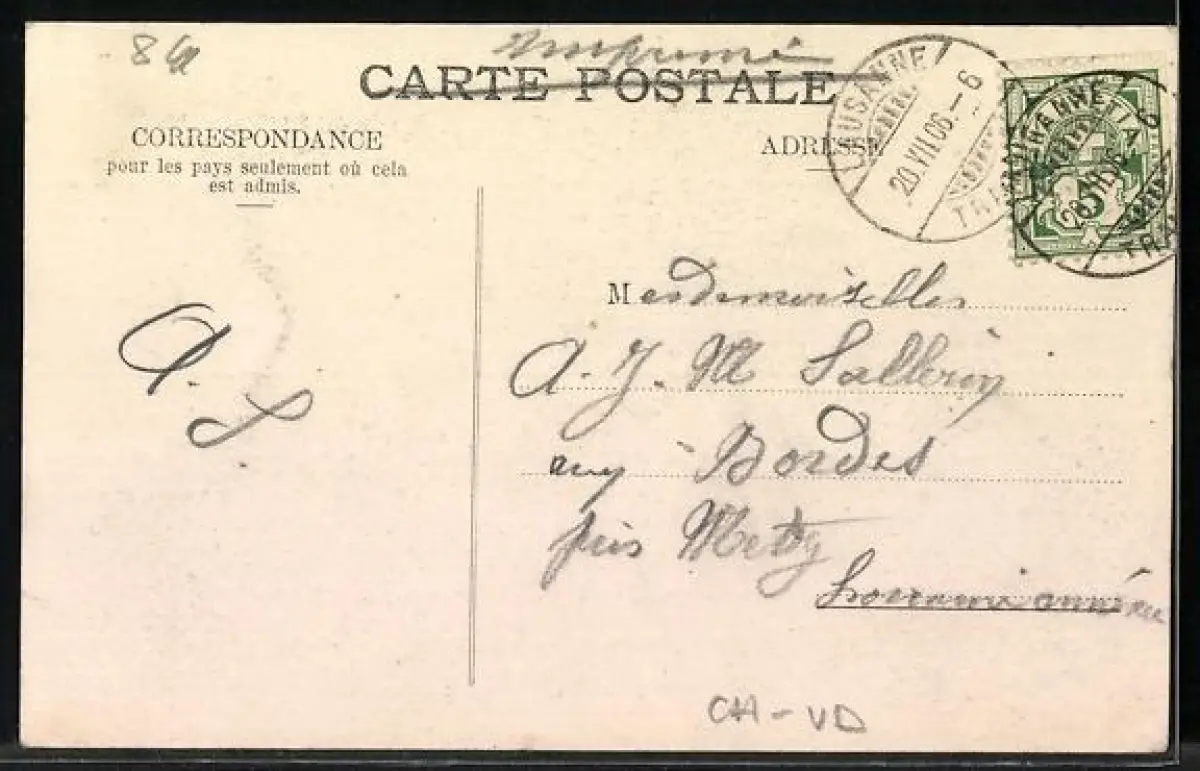 Imprimé
CARTE POSTALE
CORRESPONDANCE
pour les pays seulement où cela
est admis.
ADRESSE
LAUSANNE
20.VII.06.-6
HELVETIA
Mesdemoiselles
A. J. M
aux Bordes
près Metz
Lorraine annexée
A. J.
CH-VD